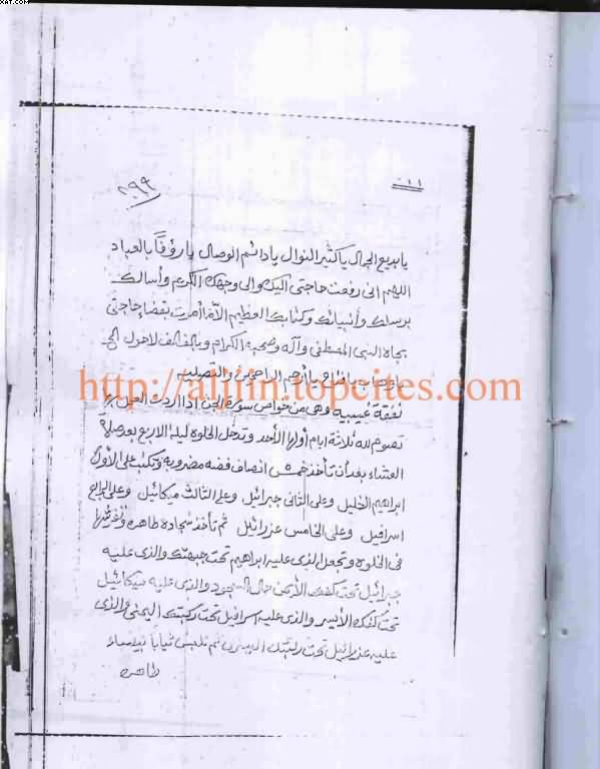 xat.com
٢٩٩
١١
يا بديع الجمال يا كثير النوال يا دائم الوصال يا رؤوفًا بالعباد
اللهم انى رفعت حاجتى اليك والى وجهك الكريم وأسالك
برسلك وأنبيائك وكتابك العظيم الا ما أمرت بقضا حاجتى
بجاه النبى المصطفى وآله وصحبه الكرام وبألف ألف لاحول الخ
يا وهاب يا فتاح يا أرحم الراحمين
http://aljfin.topcities.com
نفقة غيبيه وهى من خواص سورة الجن اذا اردت العمل بها
تصوم لله ثلاثة ايام أولها الأحد وتدخل الخلوة ليلة الاربع بعد صلاة
العشاء بعد أن تأخذ خمس انصاف فضه مضروبه وتكتب على الأول
ابراهيم الخليل وعلى الثانى جبرائيل وعلى الثالث ميكائيل وعلى الرابع
اسرافيل وعلى الخامس عزرائيل ثم تأخذ سجاده طاهره وتفرشها
فى الخلوة وتجعل الذى عليه ابراهيم تحت جبهتك والذى عليه
جبرائيل تحت كفك الأيمن حال السجود والذى عليه ميكائيل
تحت كفك الأيسر والذى عليه اسرافيل تحت ركبتك اليمنى والذى
عليه عزرائيل تحت ركبتك اليسرى ثم تلبس ثيابا بيضاء
طاهره